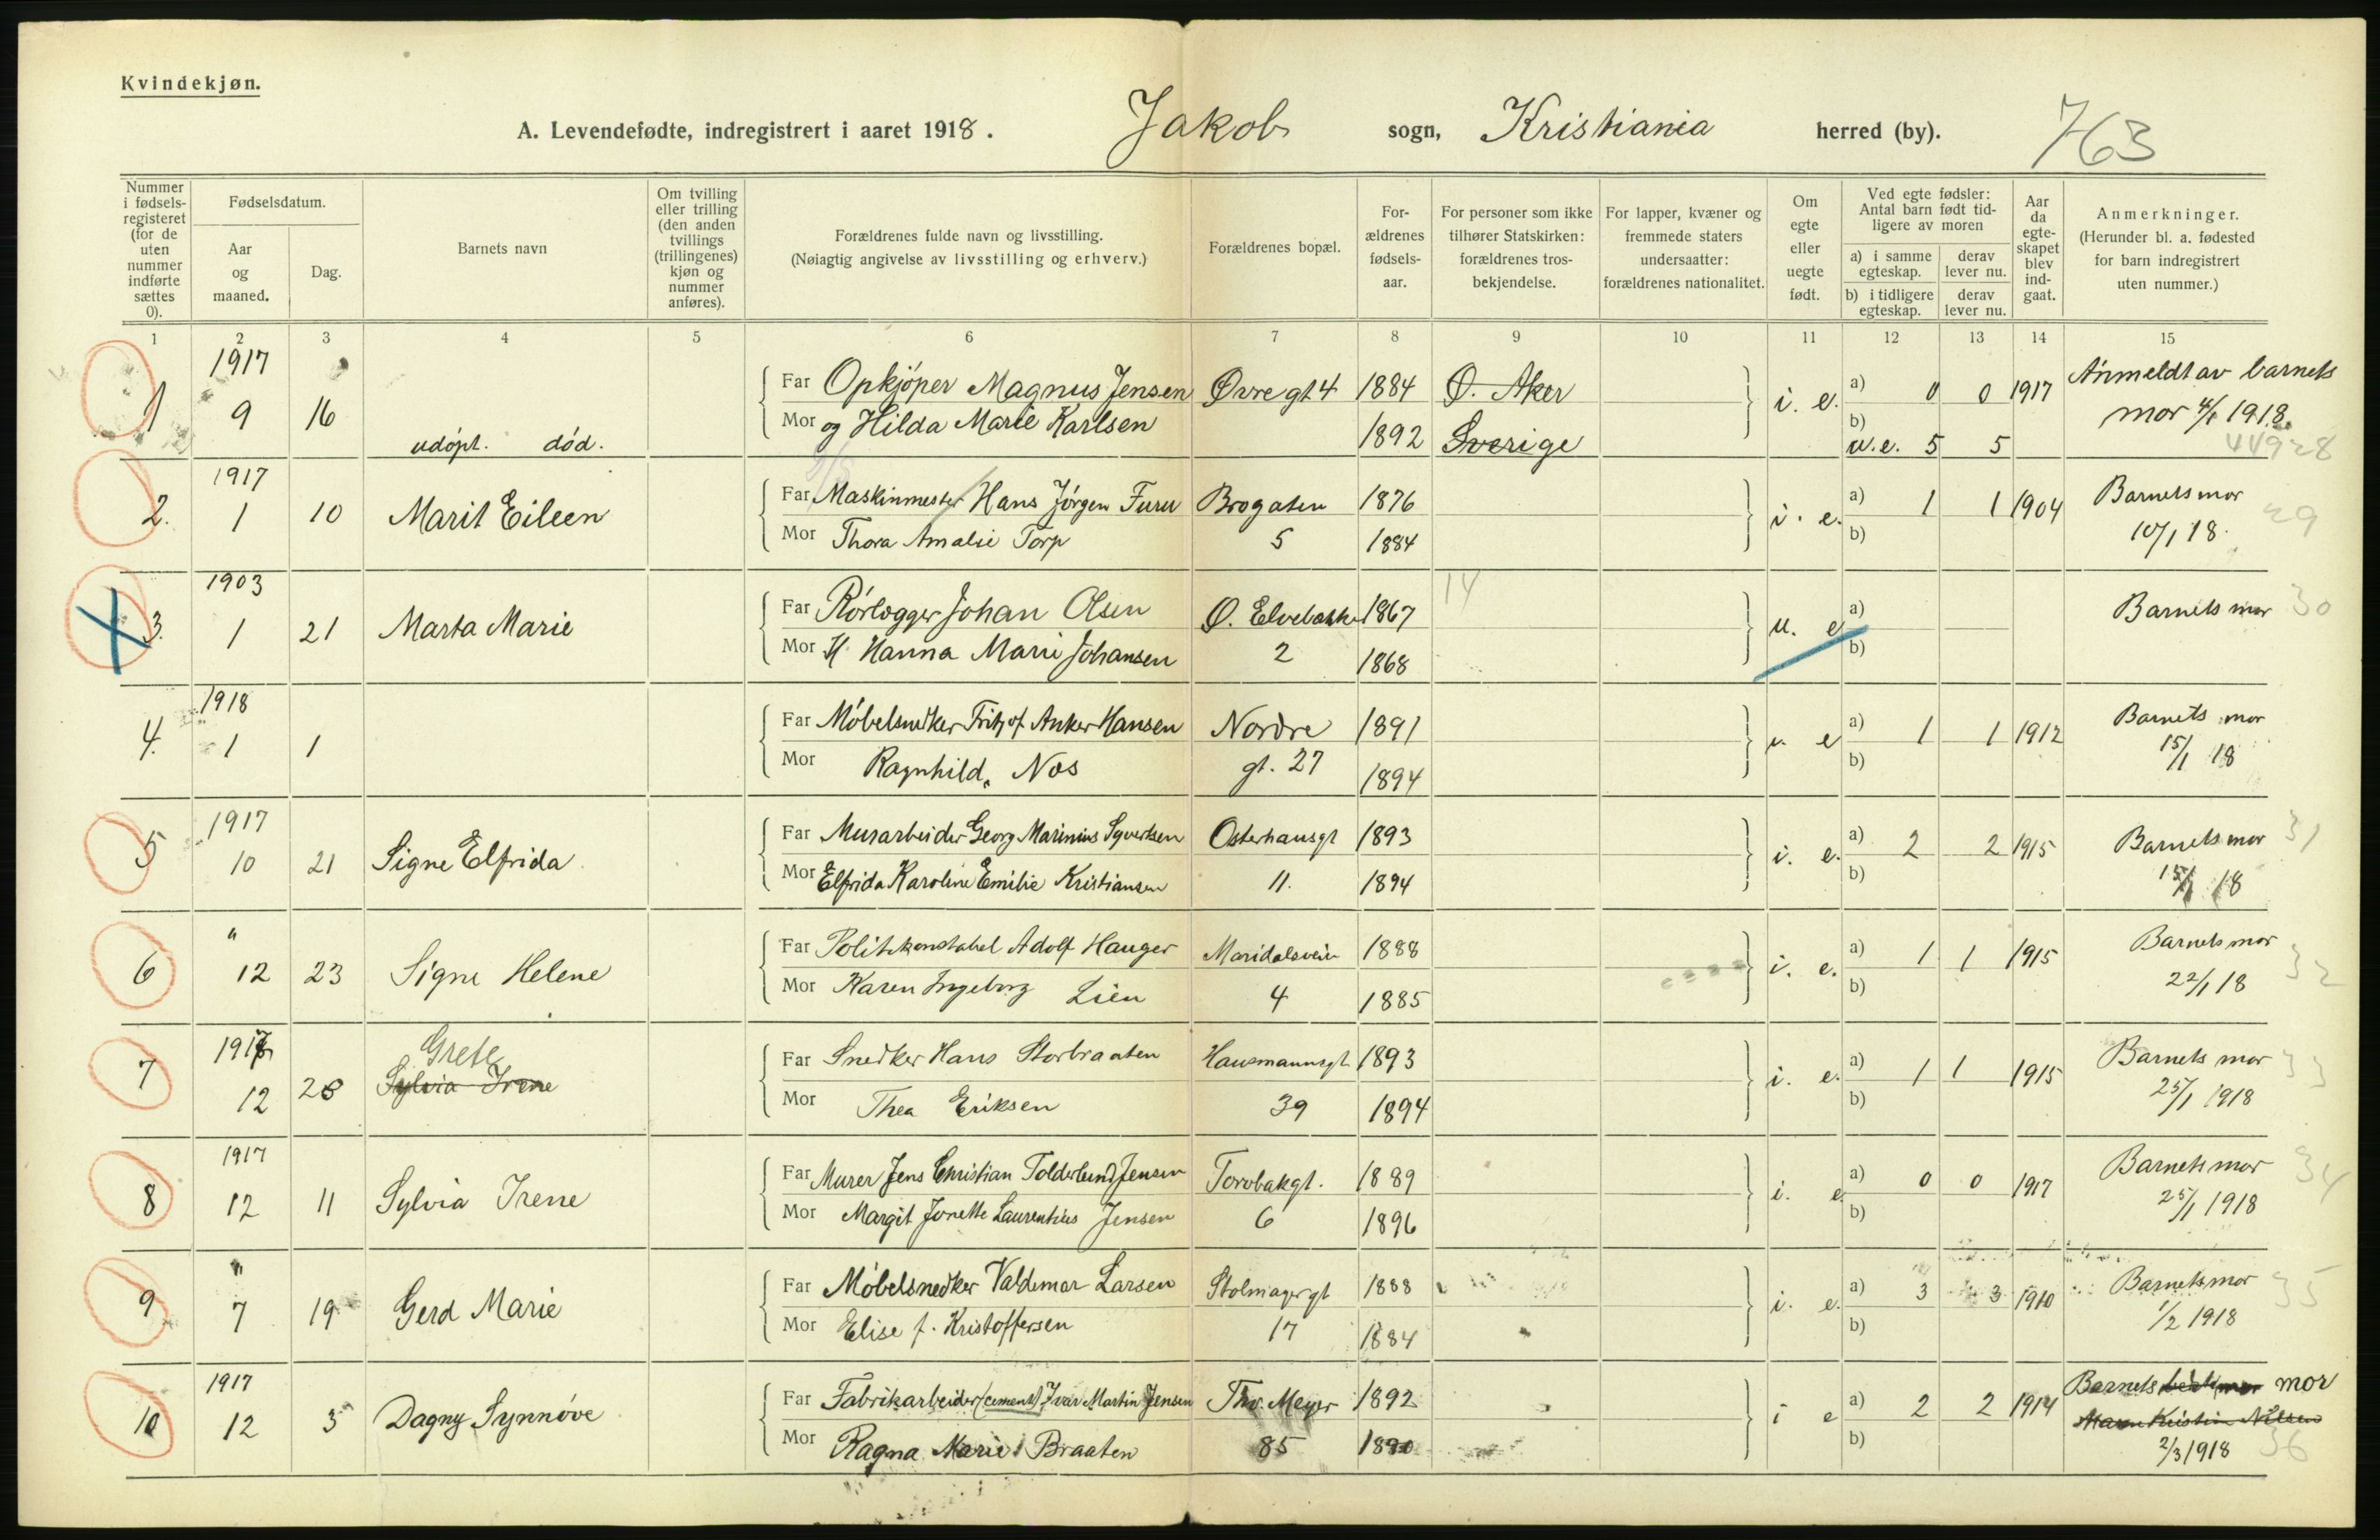 Kvindekjøn.
A. Levendefødte, indregistrert i aaret 1918. Jakob sogn, Kristiania herred (by). 763
Nummer i fødsels-registeret (for de uten nummer indførte sættes 0).
Fødselsdatum.
Aar og maaned.
Dag.
Barnets navn
Om tvilling eller trilling (den anden tvillings (trillingenes) kjøn og nummer anføres).
Forældrenes fulde navn og livsstilling.
(Nøiagtig angivelse av livsstilling og erhverv.)
Forældrenes bopæl.
For-ældrenes fødsels-aar.
For personer som ikke tilhører Statskirken: forældrenes tros-bekjendelse.
For lapper, kvæner og fremmede staters undersaatter: forældrenes nationalitet.
Om egte eller uegte født.
Ved egte fødsler: Antal barn født tid-ligere av moren
a) i samme egteskap. derav lever nu.
b) i tidligere egteskap. derav lever nu.
Aar da egte-skapet blev ind-gaat.
Anmerkninger.
(Herunder bl. a. fødested for barn indregistrert uten nummer.)
1 2 3 4 5 6 7 8 9 10 11 12 13 14 15
1917
Far Opkjóper Magnus Jensen Øvregt 4 1884 Ø. Aker a) 0 0 1917 Anmeldt av barnets
1 9 16 i. e.
Mor og Hilda Marie Karlsen 1892 Sverige b) mor 4/1 1918.
udópt. död. u.e. 5 5 44928
1917
Far Maskinmester Hans Jórgen Furu Brogaten 1876 a) 1 1 1904 Barnets mor
2. 1 10 Marit Eileen i. e. 29
Mor Thora Amalie Torp 5 1884 b) 10/1 18.
1903
Far Rórlogger Johan Olsen Ø. Elvebakke 1867 14 a) Barnets mor 30
3. 1 21 Marta Marie u. e.
Mor H Hanna Marie Johansen 2 1868 b)
1918
Far Móbelsnedker Fritjof Anker Hansen Nordre 1891 a) 1 1 1912 Barnets mor
4. 1 1 e
Mor Ragnhild Nos gt. 27 1894 b) 15/1 18
1917
Far Murarbeider Georg Marinius Syvertsen Osterhausgt 1893 a) 2 2 1915 Barnets mor 31
5 10 21 Signe Elfrida i. e.
Mor Elfrida Karoline Emilie Kristiansen 11. 1894 b) 15/1 18
"
Far Politikonstabel Adolf Hauger Maridalsveien 1888 a) 1 1 1915 Barnets mor
6 12 23 Signe Helene i. e. 32
Mor Karen Ingeborg Lien 4 1885 b) 22/1 18
1917 Grete
Far Snedker Hans Storbraaten Hausmannsgt 1893 a) 1 1 1915 Barnets mor 33
7 12 28 Sylvia Irene i. e.
Mor Thea Eriksen 39 1894 b) 25/1 1918
1917
Far Murer Jens Christian Tolderlund Jensen Torvbakgt. 1889 a) 0 0 1917 Barnets mor 34
8 12 11 Sylvia Irene i. e.
Mor Margit Jonette Laurentius Jensen 6 1896 b) 25/1 1918
"
Far Móbelsnedker Valdemar Larsen Stolmagergt 1888 a) 3 3 1910 Barnets mor 35
9 7 19 Gerd Marie i. e.
Mor Elise f. Kristoffersen 17 1884 b) 1/2 1918
1917
Far Fabrikarbeider (cement) Ivar Martin Jensen Thv. Meyer 1892 a) 2 2 1914 Barnets mor
10 12 3 Dagny Synnóve i e Kristin Nilsen
Mor Ragna Marie Braaten 85 1890 b) 2/3 1918 36